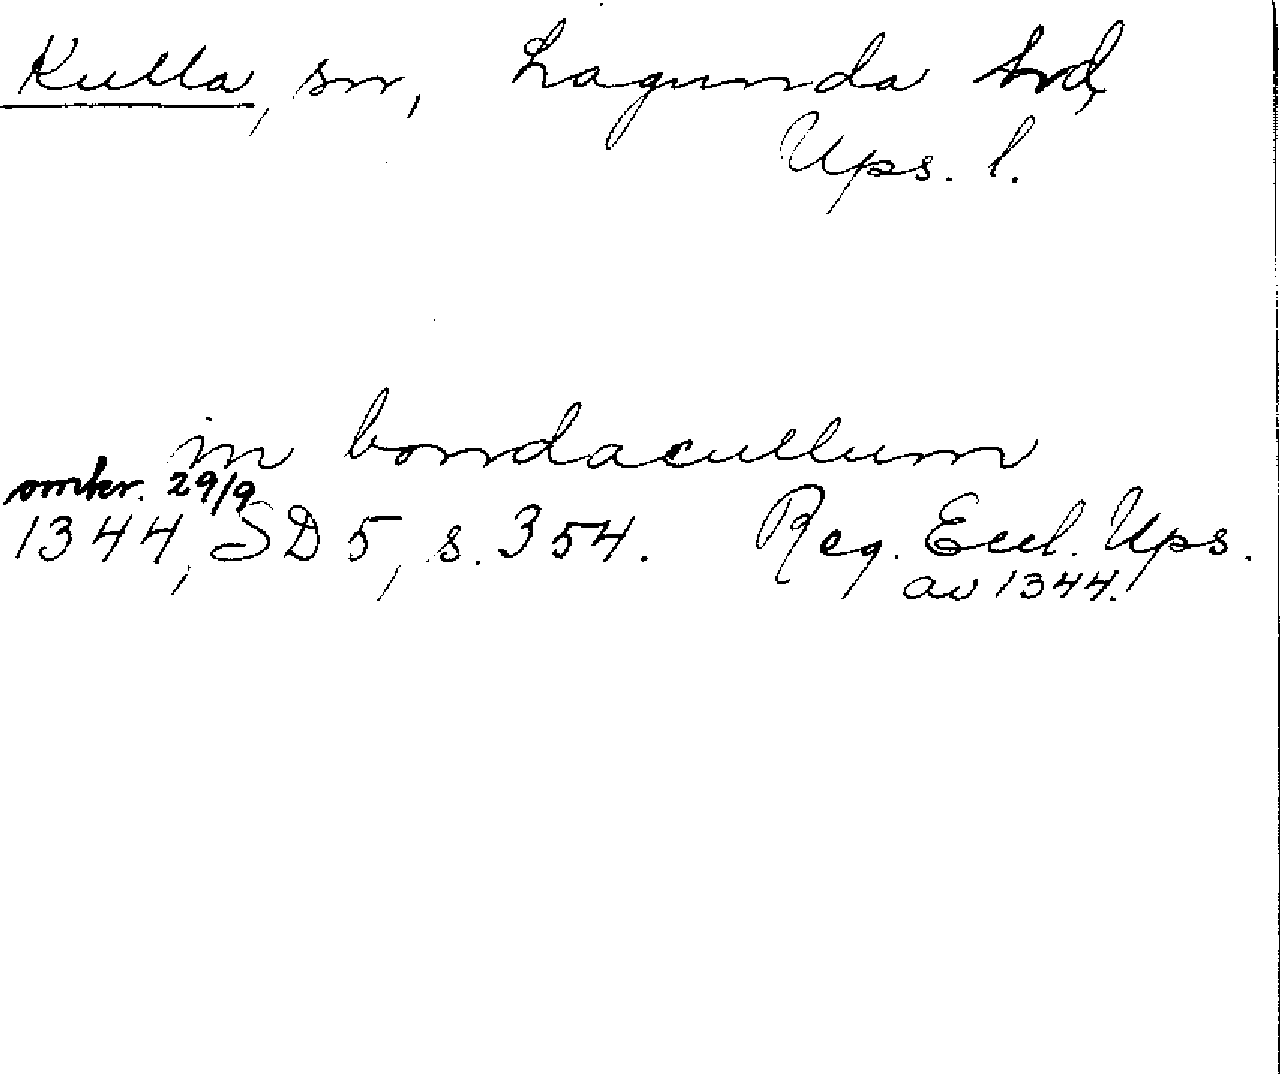 Kulla, sn, Lagunda hd,
Ups. l.
in bondacullum
omkr. 29/9
1344, SD 5, s. 354. Reg. Eccl. Ups.
av 1344.